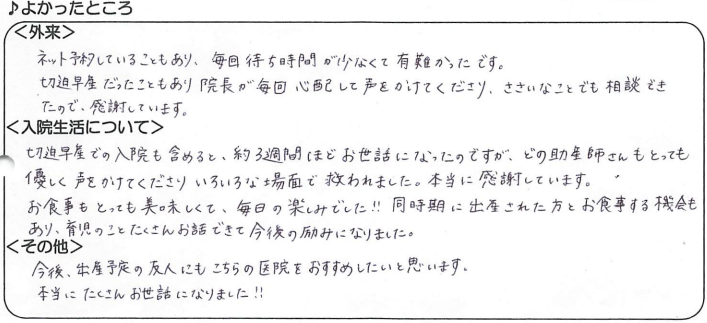 ♪よかったところ
<外来>
ネット予約していることもあり、毎回待ち時間が少なくて有難かったです。
切迫早産だったこともあり院長が毎回心配して声をかけてくださり、ささいなことでも相談でき
たので、感謝しています。
<入院生活について>
切迫早産での入院も含めると、約3週間ほどお世話になったのですが、どの助産師さんもとっても
優しく声をかけてくださりいろいろな場面で救われました。本当に感謝しています。
お食事もとっても美味しくて、毎日の楽しみでした!! 同時期に出産された方とお食事する機会も
あり、育児のことたくさんお話できて今後の励みになりました。
<その他>
今後、出産予定の友人にもこちらの医院をおすすめしたいと思います。
本当にたくさんお世話になりました!!